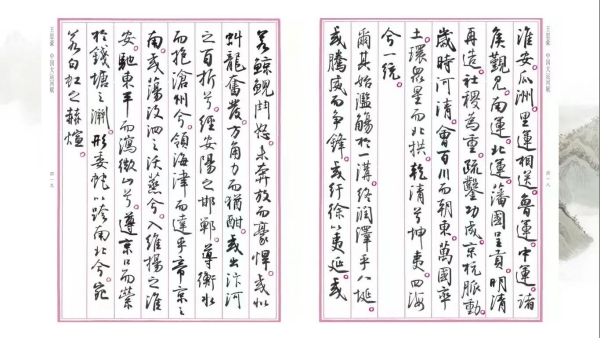 淮安瓜洲里運相送魯運中運諸
侯覲見南運北運藩國呈貢明清
再造社稷為重疏鑿功成京杭脈動
歲時河清會百川而朝東萬國率
土環眾星而北拱乾清兮坤夷四海
兮一統
爾其始濫觴於一溝終潤澤乎八埏
或騰威而爭鋒或紆徐以夷延或
若鯨鯢鬥怒未奔放而豪悍或似
虯龍奮發萬角力而猶酣或出汴河
之百折兮經安陽之邯鄲導衡水
而抱滄州兮領海津而達乎帝京
南或蕩汶泗之沃蕩兮入維揚之淮
安馳東平而瀉微山兮遵京口而縈
於錢塘之湍形委蛇以跨南北兮宛
若白虹之赫煊
王思豪 中国大运河赋
王思豪 中国大运河赋
四一八
四一九